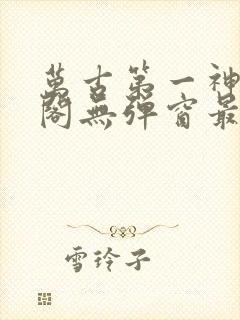 萬古第一神
閣無彈窗最
雪玲子